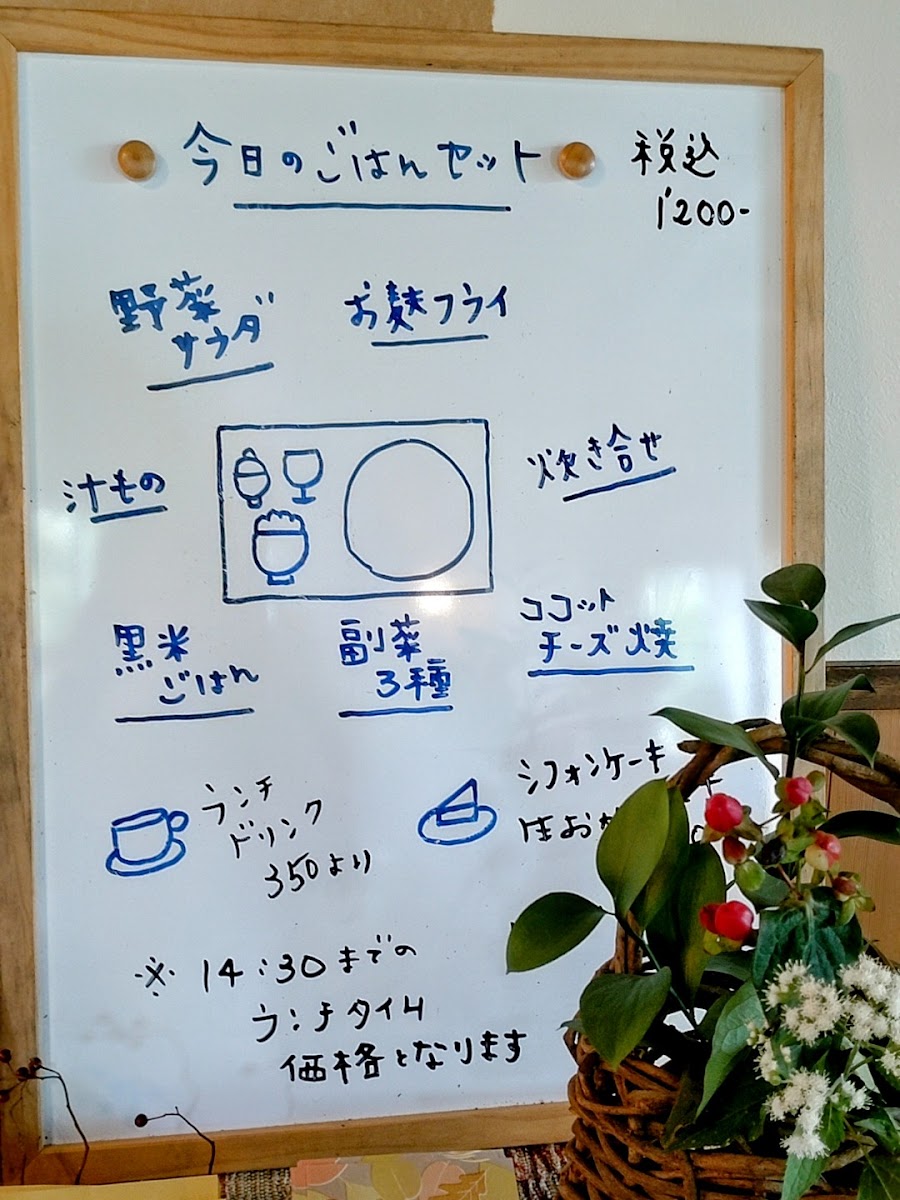 今日のごはんセット
税込
1'200-
野菜
サラダ
お麩フライ
汁もの
炊き合せ
黒米
ごはん
副菜
3種
ココット
チーズ焼
ランチ
ドリンク
350より
シフォンケーキ
はお
※ 14:30までの
ランチタイム
価格となります